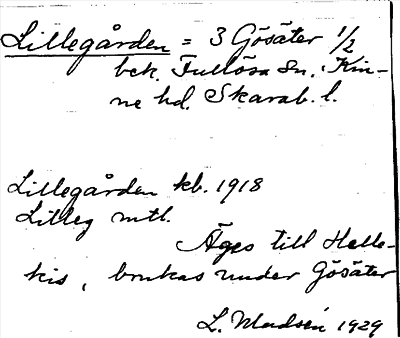 Lillegården = 3 Gösäter 1/2
bek. Fullösa sn. Kin-
ne hd. Skarab. l.
Lillegården kb. 1918
Lilleg mtl.
Äges till Helle-
kis, brukas under Gösäter
L. Madsén 1929